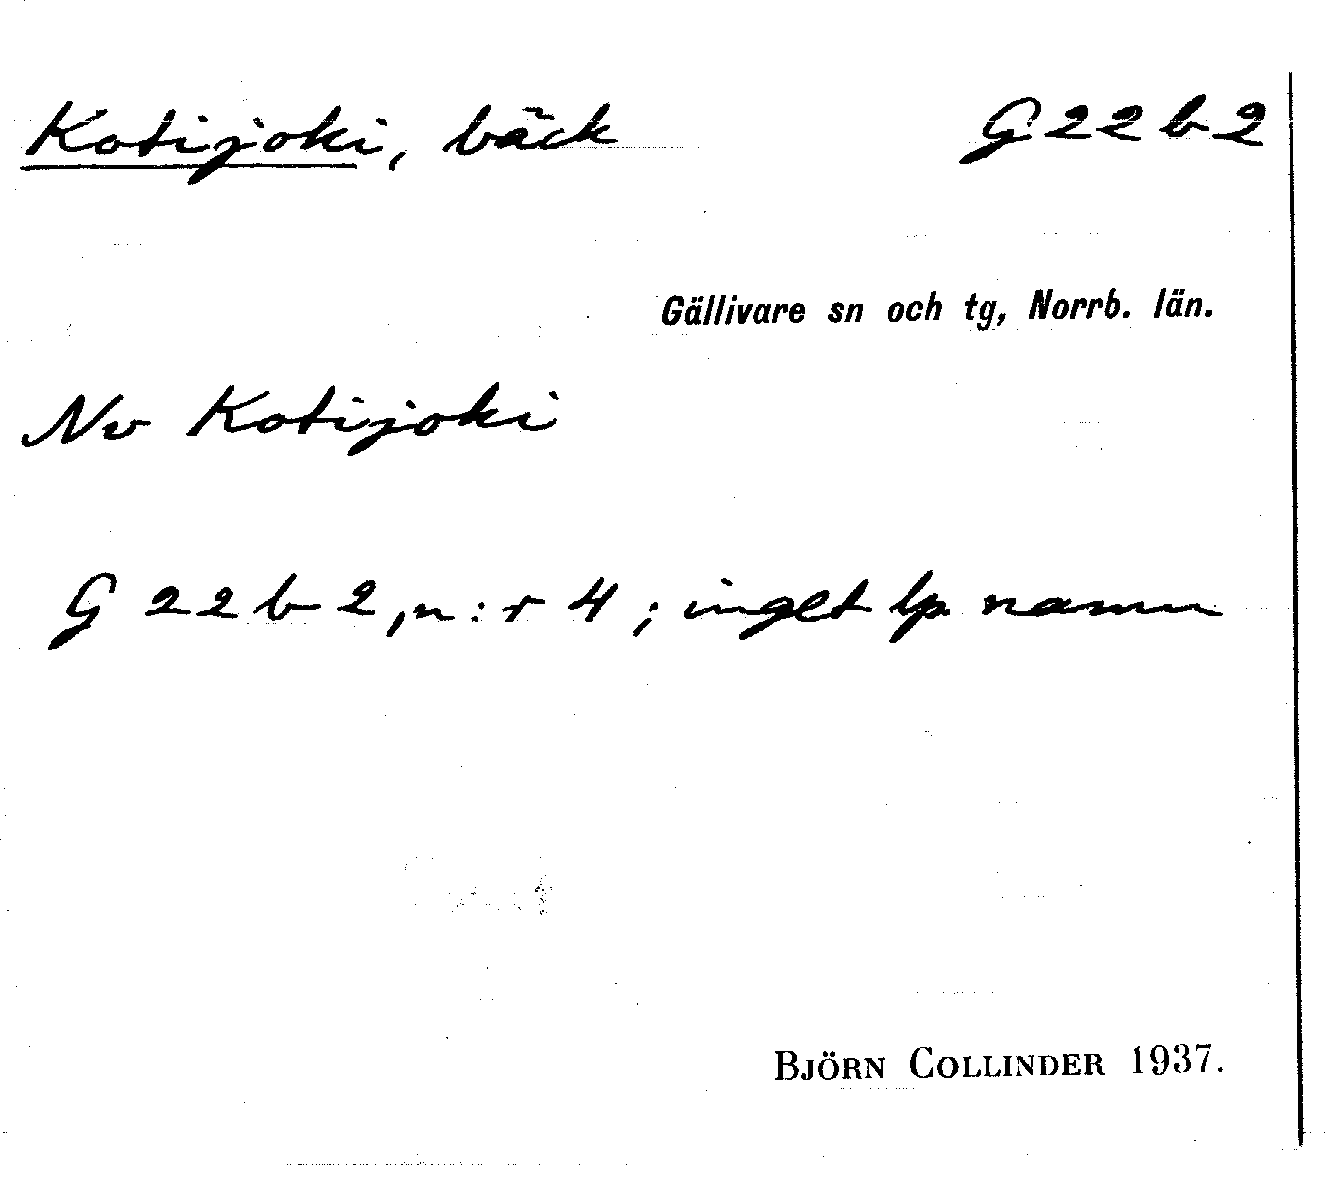 Kotijoki, bäck G22b2
Gällivare sn och tg, Norrb. län.
Nv Kotijoki
G 22b2, n:r 4; inget lp namn
BJÖRN COLLINDER 1937.